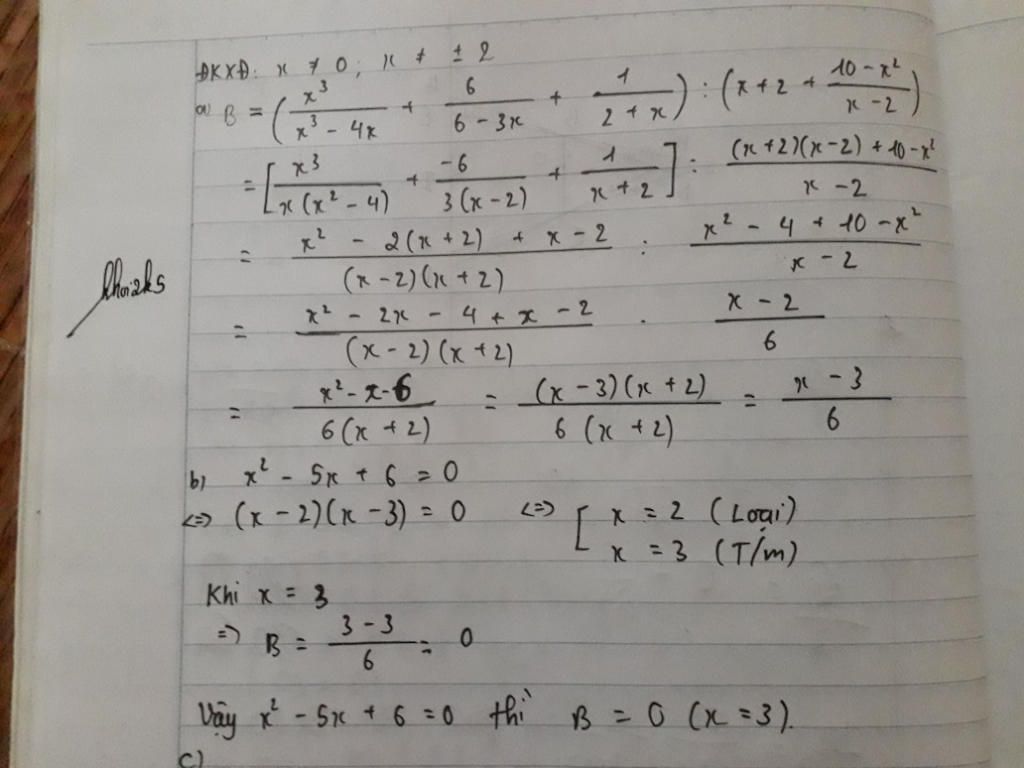 ĐKXĐ: x ≠ 0; x ≠ ± 2
a) B = (x³/(x³ - 4x) + 6/(6 - 3x) + 1/(2 + x)) : (x + 2 + (10 - x²)/(x - 2))
= [x³/(x(x² - 4)) + -6/(3(x - 2)) + 1/(x + 2)] : ((x + 2)(x - 2) + 10 - x²)/(x - 2)
= (x² - 2(x + 2) + x - 2)/((x - 2)(x + 2)) : (x² - 4 + 10 - x²)/(x - 2)
= (x² - 2x - 4 + x - 2)/((x - 2)(x + 2)) . (x - 2)/6
= (x² - x - 6)/(6(x + 2)) = ((x - 3)(x + 2))/(6(x + 2)) = (x - 3)/6
b) x² - 5x + 6 = 0
<=> (x - 2)(x - 3) = 0 <=> [ x = 2 (Loại)
x = 3 (T/m)
Khi x = 3
=> B = (3 - 3)/6 = 0
Vậy x² - 5x + 6 = 0 thì B = 0 (x = 3).
c)